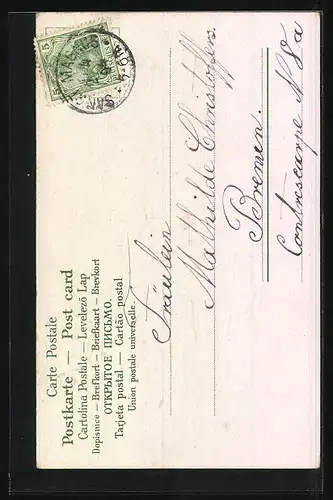 Carte Postale
Postkarte — Post card
Cartolina Postale — Levelező Lap
Dopisnice — Brefkort — Briefkaart — Brevkort
ОТКРЫТОЕ ПИСЬМО.
Tarjeta postal — Cartão postal
Union postale universelle.
5
Fräulein
Mathilde Christoffers.
Bremen.
Contrescarpe